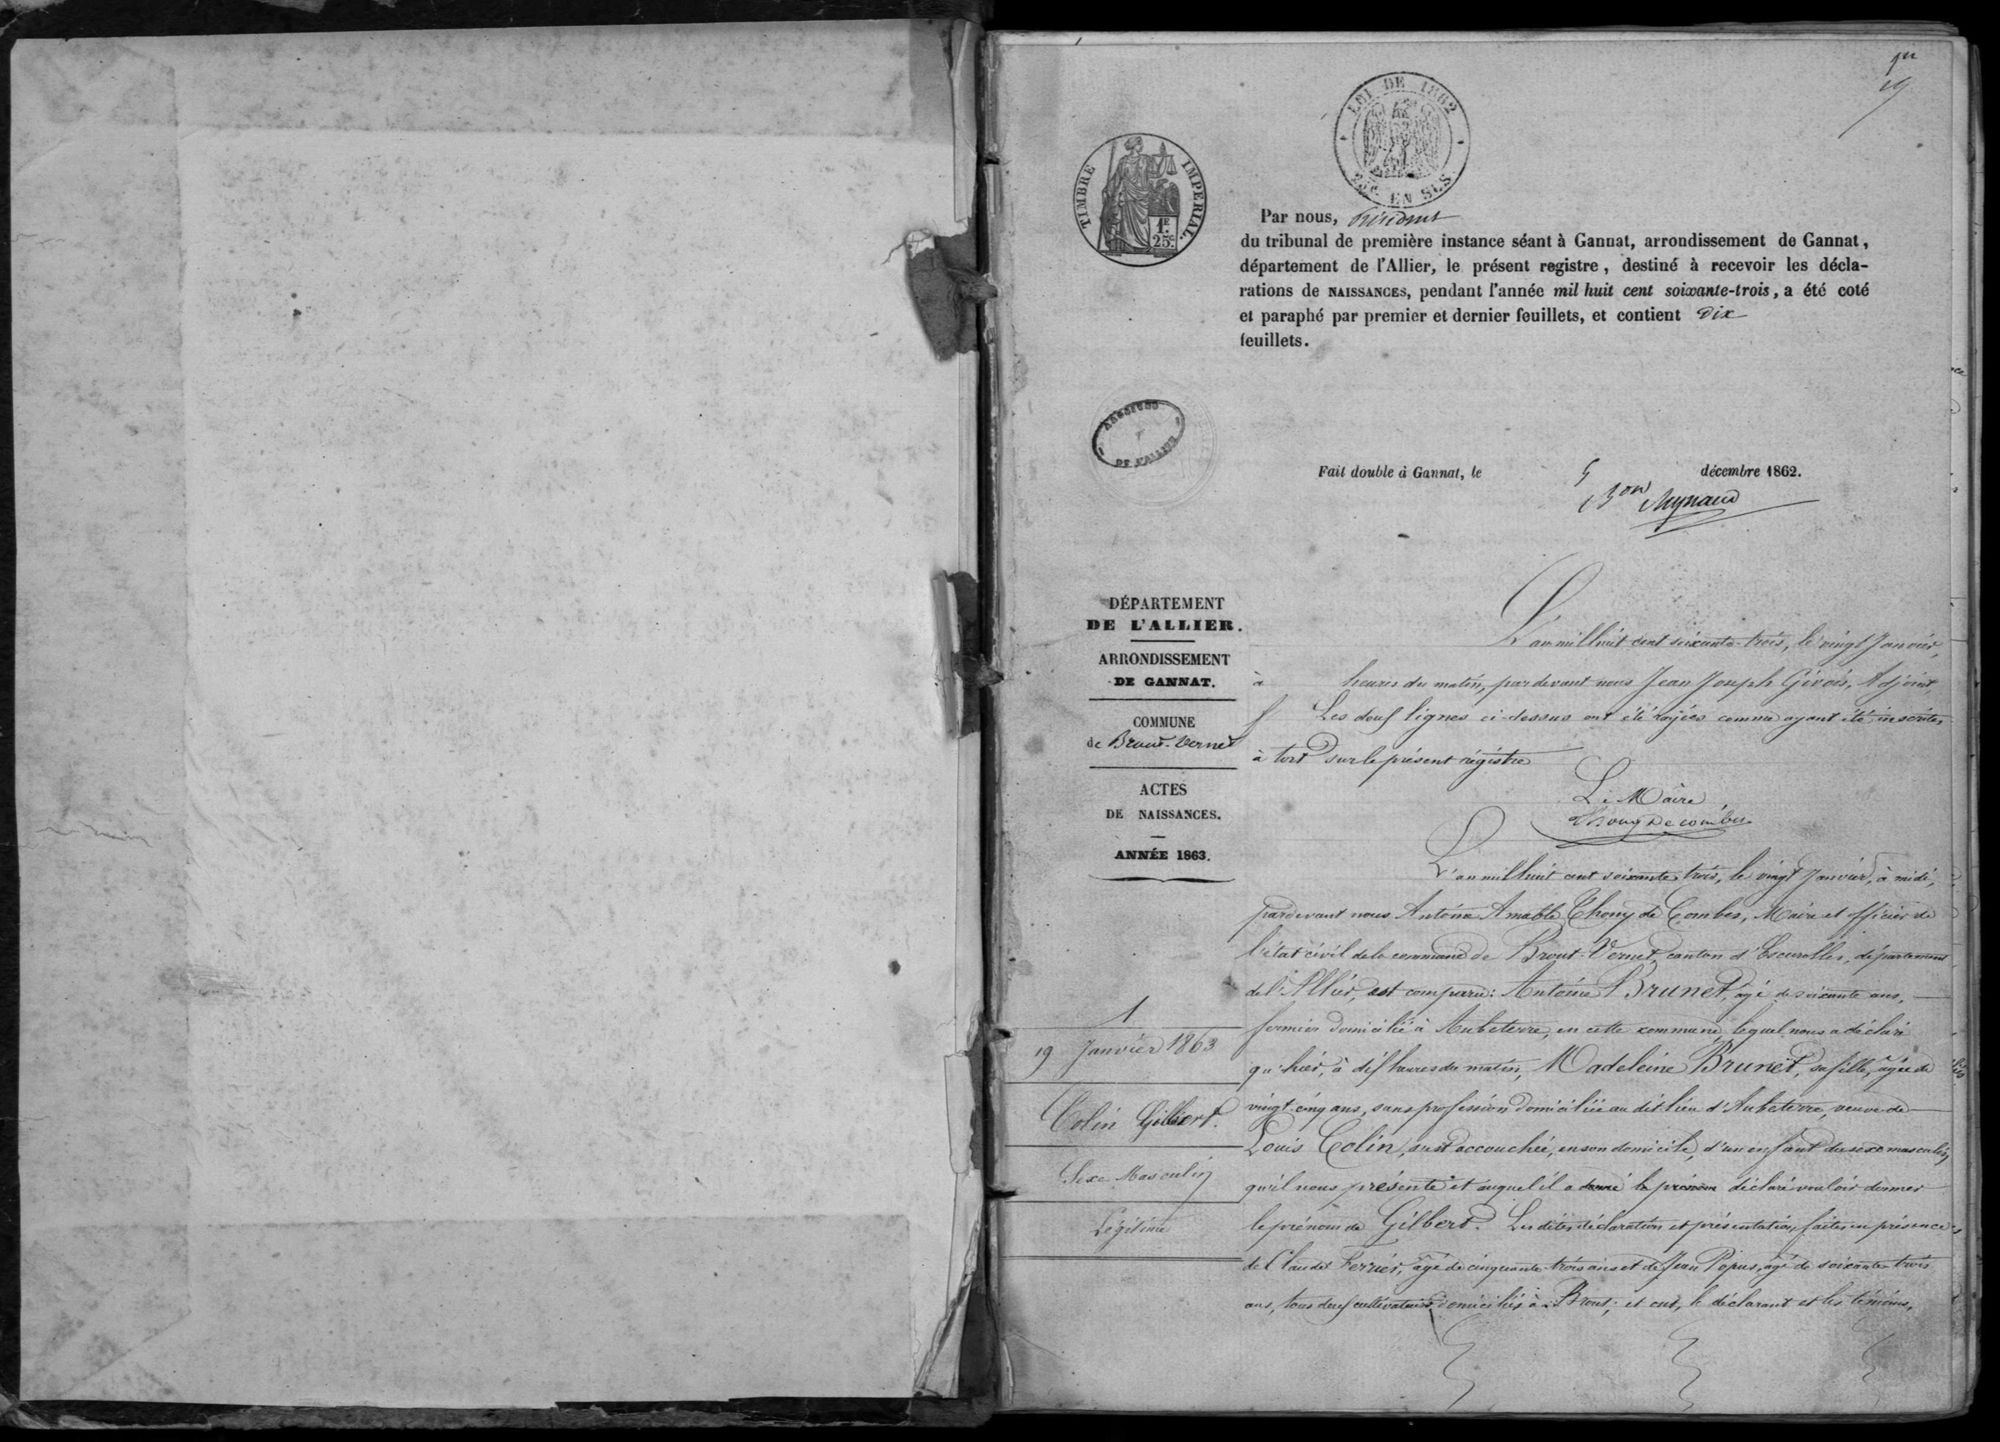 1er
LOI DE 1862
25c EN SUS
TIMBRE IMPERIAL.
1F
25c.
Par nous, Président
du tribunal de première instance séant à Gannat, arrondissement de Gannat,
département de l'Allier, le présent registre, destiné à recevoir les décla-
rations de NAISSANCES, pendant l'année mil huit cent soixante-trois, a été coté
et paraphé par premier et dernier feuillets, et contient dix
feuillets.
ARCHIVES
DE L'ALLIER
Fait double à Gannat, le 5 décembre 1862.
Bon Reynaud
DÉPARTEMENT
DE L'ALLIER.
ARRONDISSEMENT
DE GANNAT.
COMMUNE
de Brout-Vernet
ACTES
DE NAISSANCES.
ANNÉE 1863.
L'an mil huit cent soixante-trois, le vingt Janvier,
à heures du matin, pardevant nous Jean Joseph Givois, Adjoint,
Les deux lignes ci-dessus ont été rayées comme ayant été inscrites
à tort sur le présent régistre
Le Maire
Thony de Combes
L'an mil huit cent soixante trois, le vingt Janvier, à midi,
pardevant nous Antoine Amable Thony de Combes, Maire et officier de
l'état civil de la commune de Brout-Vernet, canton d'Escurolles, département
de l'Allier, est comparu: Antoine Brunet, âgé de soixante ans,
fermier domicilié à Aubeterre, en cette commune, lequel nous a déclaré
qu'hier, à dix heures du matin, Madeleine Brunet, sa fille, âgée de
vingt-cinq ans, sans profession domiciliée au dit lieu d'Aubeterre, veuve de
Louis Colin, s'est accouchée, en son domicile, d'un enfant du sexe masculin
qu'il nous présente et auquel il a donné le prénom déclaré vouloir donner
le prénom de Gilbert. Les dites déclaration et présentation faites en présence
de Claude Ferrier, âgé de cinquante-trois ans et de Jean Popus, âgé de soixante-trois
ans, tous deux cultivateurs domiciliés à Brout; et ont, le déclarant et les témoins,
1
19 Janvier 1863
Colin Gilbert.
Sexe Masculin
Légitime